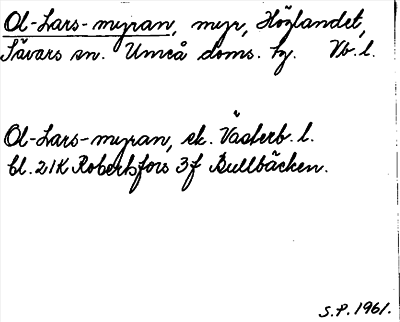 Ol-Lars-myran, myr, Höglandet,
Sävars sn. Umeå doms. hy. Vb. l.
Ol-Lars-myran, ek. Västerb. l.
bl. 21K Robertsfors 3f Bullbäcken.
S.P. 1961.